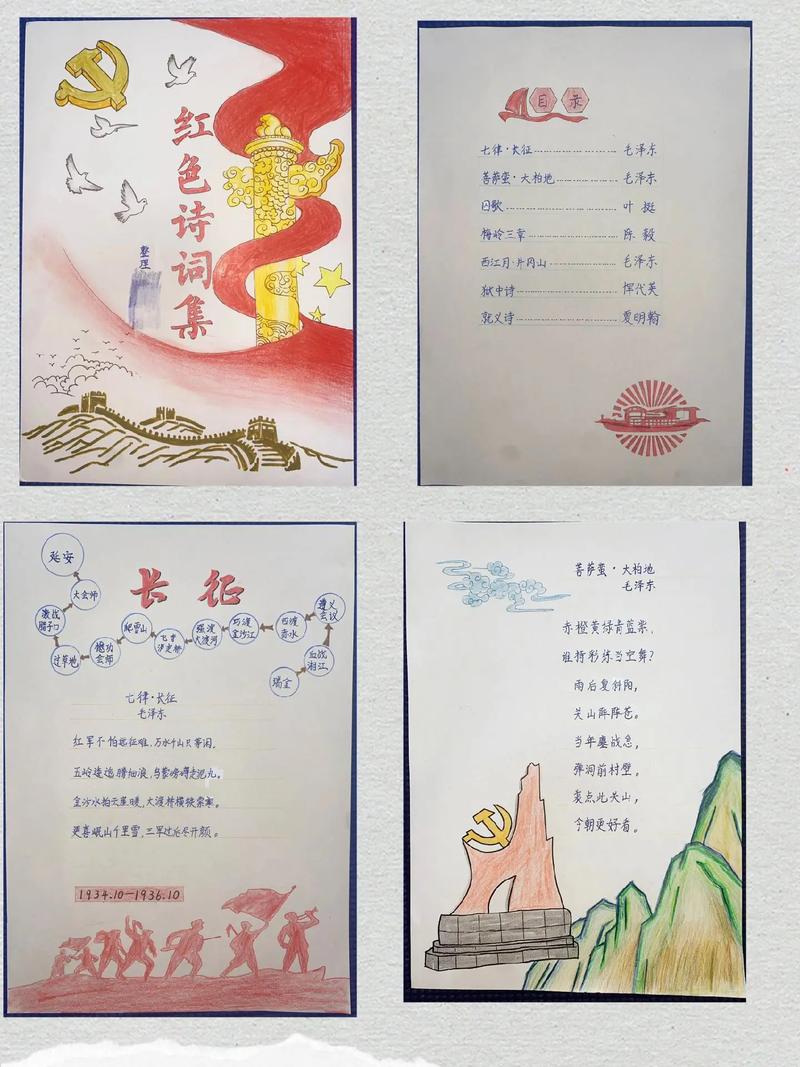 红色诗词集
整理
目录
七律·长征 毛泽东
菩萨蛮·大柏地 毛泽东
囚歌 叶挺
梅岭三章 陈毅
西江月·井冈山 毛泽东
狱中诗 恽代英
就义诗 夏明翰
长征
延安
大会师
激战
腊子口
过草地
懋功
会师
爬雪山
飞夺
泸定桥
强渡
大渡河
巧渡
金沙江
四渡
赤水
遵义
会议
血战
湘江
瑞金
七律·长征
毛泽东
红军不怕远征难,万水千山只等闲。
五岭逶迤腾细浪,乌蒙磅礴走泥丸。
金沙水拍云崖暖,大渡桥横铁索寒。
更喜岷山千里雪,三军过后尽开颜。
1934.10—1936.10
菩萨蛮·大柏地
毛泽东
赤橙黄绿青蓝紫,
谁持彩练当空舞?
雨后复斜阳,
关山阵阵苍。
当年鏖战急,
弹洞前村壁。
装点此关山,
今朝更好看。